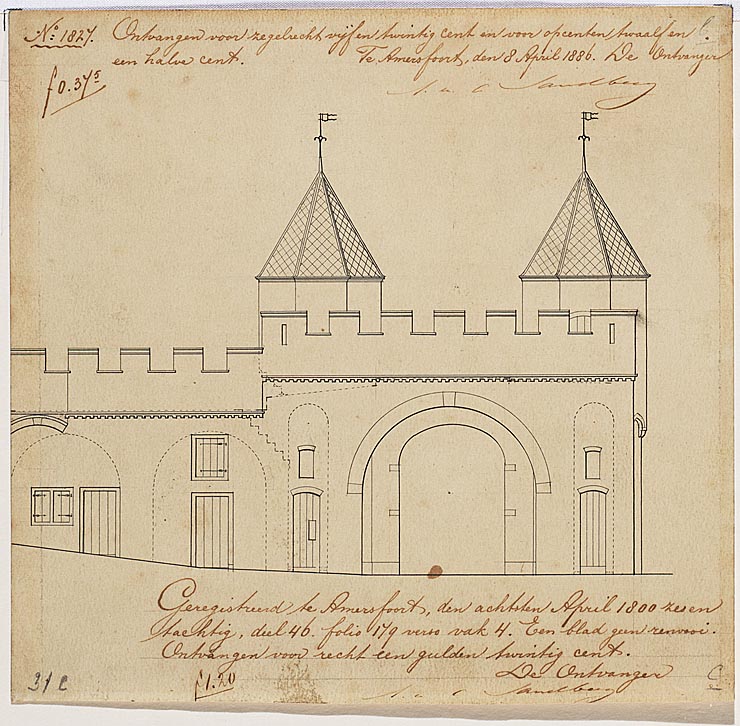 No. 1827. Ontvangen voor zegelrecht vijf en twintig cent en voor opcenten twaalf en
een halve cent. Te Amersfoort, den 8 April 1886. De Ontvanger
f 0.37⁵
Sandberg
Geregistreerd te Amersfoort, den achtsten April 1800 zes en
tachtig, deel 46. folio 179 verso vak 4. Een blad geen renvooi.
Ontvangen voor recht een gulden twintig cent.
f 1.20 De Ontvanger
Sandberg
31 C
C